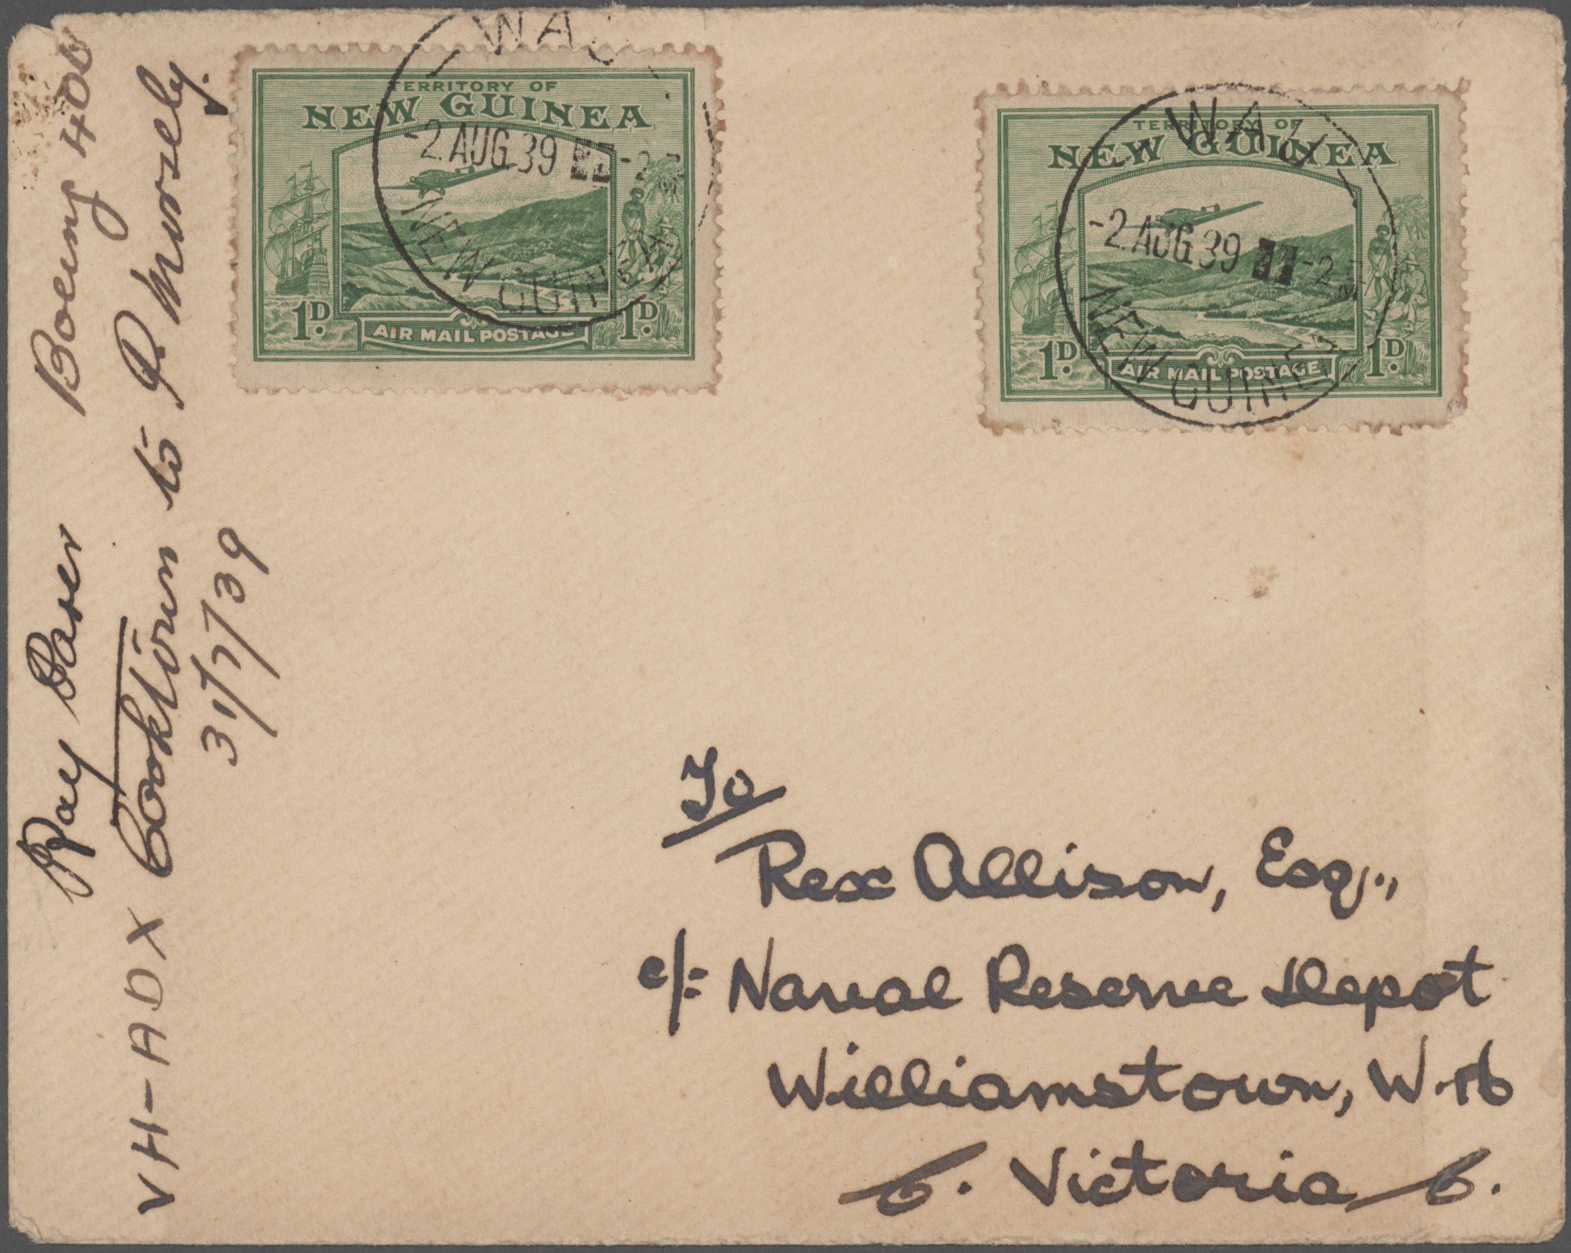 WAU
-2 AUG 39
NEW GUINEA
TERRITORY OF
NEW GUINEA
1D.
AIR MAIL POSTAGE
1D.
WAU
-2 AUG 39
NEW GUINEA
TERRITORY OF
NEW GUINEA
1D.
AIR MAIL POSTAGE
1D.
Ray Parer Boeing 40D
VH-ADX Cooktown to P. Moresby.
31/7/39
To
Rex Allison, Esq.,
c/- Naval Reserve Depot
Williamstown, W.16
6. Victoria 6.